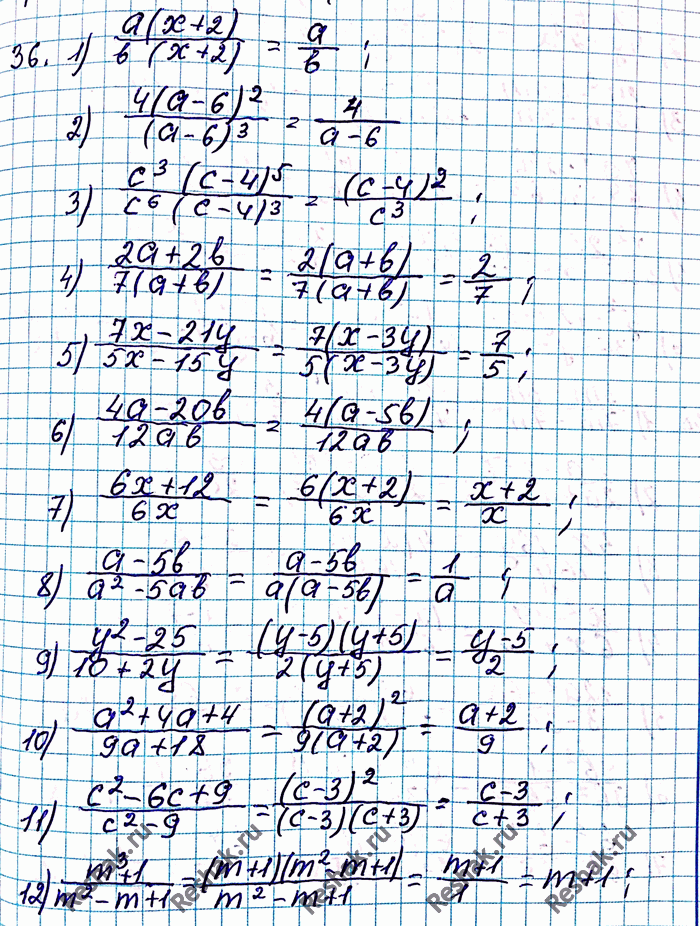 36. 1) a(x+2)/в (x+2) = a/в ;
2) 4(a-6)²/(a-6)³ = 4/a-6
3) c³ (c-4)⁵/c⁶ (c-4)³ = (c-4)²/c³ ;
4) 2a+2в/7(a+в) = 2(a+в)/7(a+в) = 2/7 ;
5) 7x-21y/5x-15y = 7(x-3y)/5(x-3y) = 7/5 ;
6) 4a-20в/12aв = 4(a-5в)/12aв ;
7) 6x+12/6x = 6(x+2)/6x = x+2/x ;
8) a-5в/a²-5aв = a-5в/a(a-5в) = 1/a ;
9) y²-25/10+2y = (y-5)(y+5)/2(y+5) = y-5/2 ;
10) a²+4a+4/9a+18 = (a+2)²/9(a+2) = a+2/9 ;
11) c²-6c+9/c²-9 = (c-3)²/(c-3)(c+3) = c-3/c+3 ;
12) m³+1/m²-m+1 = (m+1)(m²-m+1)/m²-m+1 = m+1/1 = m+1 ;
Reshak.ru
Reshak.ru
Reshak.ru
Reshak.ru